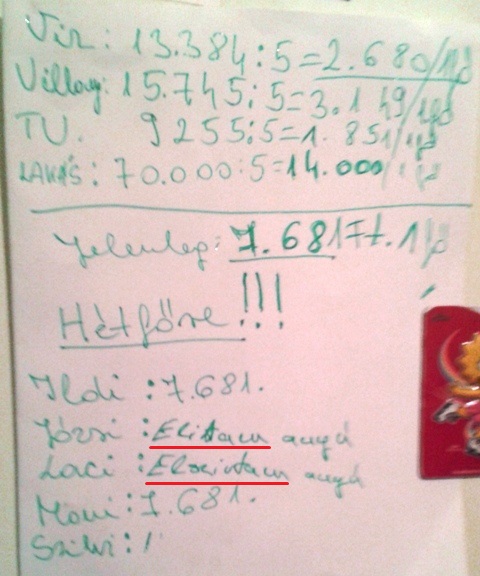 Víz: 13.384:5=2.680/fő
Villany: 15.745:5=3.149/fő
TV. 9255:5=1.851/fő
LAKÁS: 70.000:5=14.000/fő
Jelenleg: 7.681Ft.1/fő
Hétfőre!!!
Ildi: 7.681.
Józsi: Elittam anyá
Laci: Elszívtam anyá
Móni: 7.681.
Szilvi: /